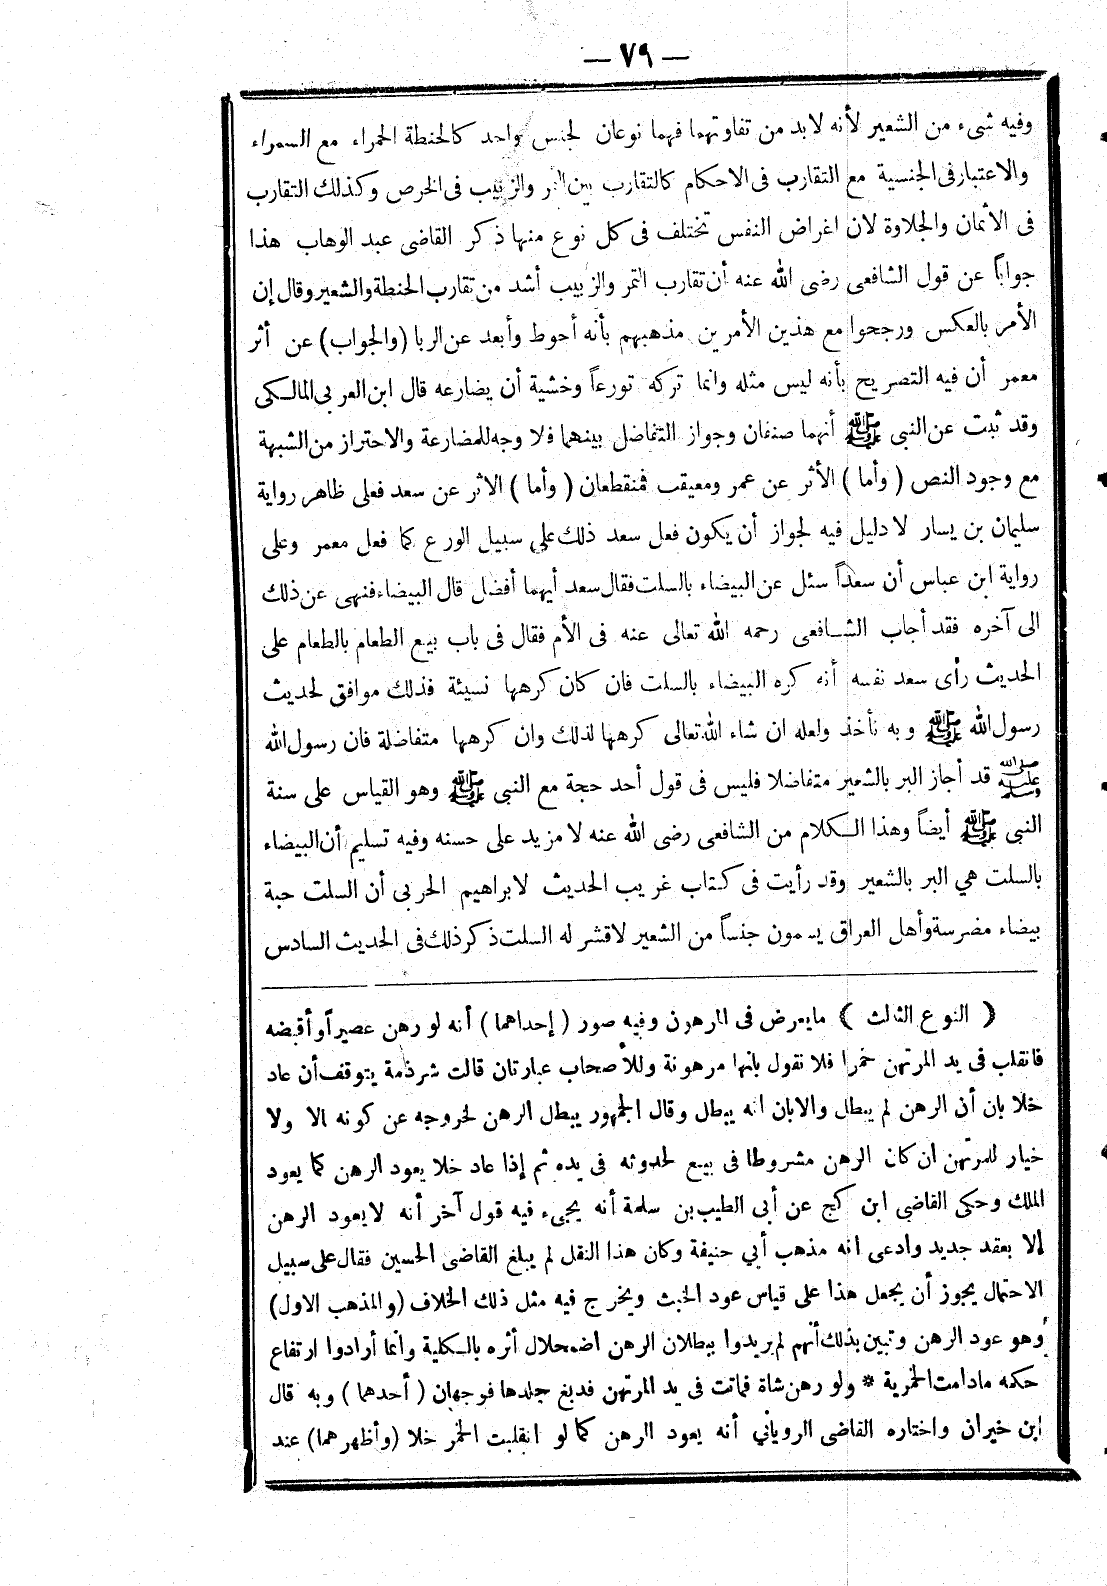 — ٧٩ —
وفيه شىء من الشعير لأنه لابد من تفاوتهما فهما نوعان لجنس واحد كالحنطة الحمراء مع السمراء
والاعتبار فى الجنسية مع التقارب فى الاحكام كالتقارب بين التمر والزبيب فى الخرص وكذلك التقارب
فى الأثمان والجلاوة لان اغراض النفس تختلف فى كل نوع منها ذكر القاضى عبد الوهاب هذا
جواباً عن قول الشافعى رضى الله عنه أن تقارب التمر والزبيب أشد من تقارب الحنطة والشعير وقال إن
الأمر بالعكس ورجحوا مع هذين الأمرين مذهبهم بأنه أحوط وأبعد عن الربا (والجواب) عن أثر
معمر أن فيه التصريح بأنه ليس مثله وانما تركه تورعاً وخشية أن يضارعه قال ابن العربى المالكى
وقد ثبت عن النبى ﷺ أنهما صنفان وجواز التفاضل بينهما فلا وجه للمضارعة والاحتراز من الشبهة
مع وجود النص ( وأما ) الأثر عن عمر ومعيقب فمنقطعان ( وأما ) الاثر عن سعد فعلى ظاهر رواية
سليمان بن يسار لا دليل فيه لجواز أن يكون فعل سعد ذلك على سبيل الورع كما فعل معمر وعلى
رواية ابن عباس أن سعداً سئل عن البيضاء بالسلت فقال سعد أيهما أفضل قال البيضاء فنهى عن ذلك
الى آخره فقد أجاب الشافعى رحمه الله تعالى عنه فى الأم فقال فى باب بيع الطعام بالطعام على
الحديث رأى سعد نفسه أنه كره البيضاء بالسلت فان كان كرهها نسيئة فذلك موافق لحديث
رسول الله ﷺ وبه نأخذ ولعله ان شاء الله تعالى كرهها لذلك وان كرهها متفاضلة فان رسول الله
ﷺ قد أجاز البر بالشعير متفاضلا فليس فى قول أحد حجة مع النبى ﷺ وهو القياس على سنة
النبى ﷺ أيضاً وهذا الكلام من الشافعى رضى الله عنه لا مزيد على حسنه وفيه تسليم أن البيضاء
بالسلت هي البر بالشعير وقد رأيت فى كتاب غريب الحديث لابراهيم الحربى أن السلت حبة
بيضاء مضرسة وأهل العراق يسمون جنساً من الشعير لاقشر له السلت ذكر ذلك فى الحديث السادس
( النوع الثالث ) ما يعرض فى المرهون وفيه صور ( إحداهما ) أنه لو رهن عصيراً وأقبضه
فانقلب فى يد المرتهن خمرا فلا نقول بانها مرهونة وللأصحاب عبارتان قالت شرذمة يتوقف أن عاد
خلا بان أن الرهن لم يبطل والا بان انه يبطل وقال الجمهور يبطل الرهن لخروجه عن كونه مالا ولا
خيار للمرتهن ان كان الرهن مشروطا فى بيع لحدوثه فى يده ثم إذا عاد خلا يعود الرهن كما يعود
الملك وحكى القاضى ابن كج عن أبى الطيب بن سلمة أنه يجىء فيه قول آخر أنه لا يعود الرهن
إلا بعقد جديد وادعى انه مذهب أبي حنيفة وكان هذا النقل لم يبلغ القاضى الحسين فقال على سبيل
الاحتمال يجوز أن يجعل هذا على قياس عود الخبث ويخرج فيه مثل ذلك الخلاف (والمذهب الاول)
وهو عود الرهن وتبين بذلك أنهم لم يريدوا ببطلان الرهن اضمحلال أثره بالكلية وانما أرادوا ارتفاع
حكمه ما دامت الخمرية * ولو رهن شاة فماتت فى يد المرتهن فدبغ جلدها فوجهان ( أحدهما ) وبه قال
ابن خيران واختاره القاضى الرويانى أنه يعود الرهن كما لو انقلبت الخمر خلا (وأظهرهما) عند